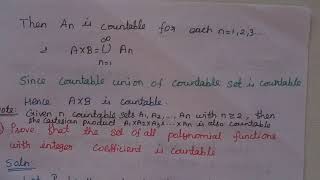 Then An is countable for each n=1,2,3...
∞
is A×B = ∪ An
n=1
Since countable union of countable set is countable
Hence A×B is countable.
Note: Given n countable sets A1, A2, ..., An with n≥2, then
the cartesian product A1×A2×A3×...×An is also countable
Prove that the set of all polynomial functions
with integer coefficient is countable
Soln: